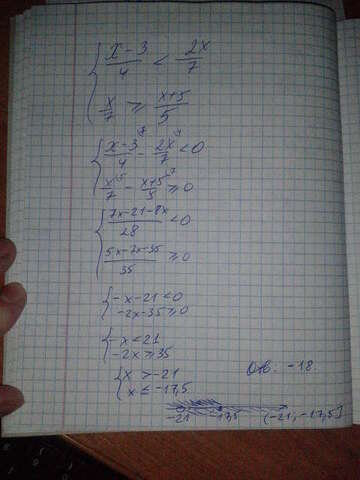 { (x-3)/4 < 2x/7
x/7 ≥ (x+5)/5
{ (x-3)/4 - 2x/7 < 0
x/7 - (x+5)/5 ≥ 0
{ (7x-21-8x)/28 < 0
(5x-7x-35)/35 ≥ 0
{ -x-21<0
-2x-35≥0
{ -x<21
-2x≥35 Отв. -18.
{ x>-21
x≤-17,5
-21 -17,5 (-21,-17,5]